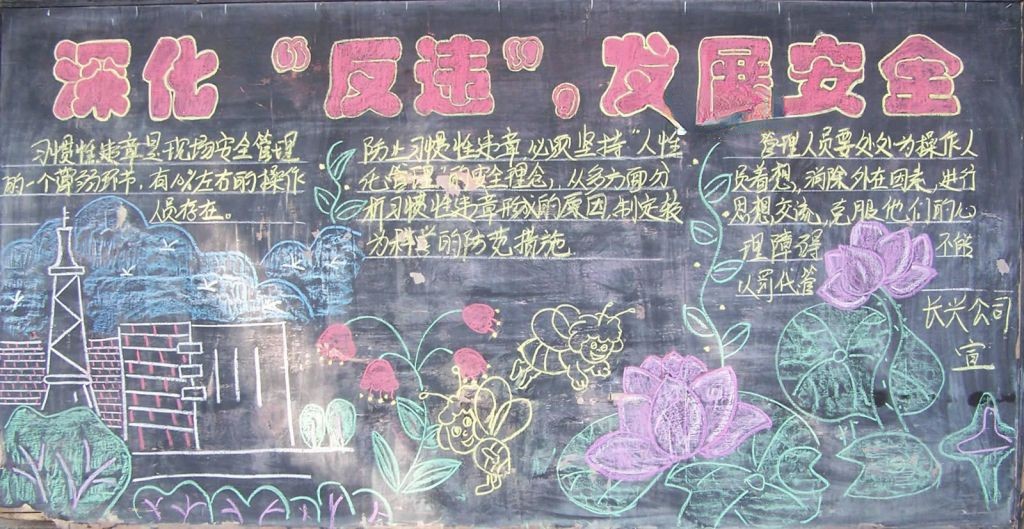 深化“反违”，发展安全
习惯性违章是现场安全管理
的一个薄弱环节，有以左右的操作
人员存在。
防止习惯性违章必须坚持“人性
化管理”的安全理念，从多方面分
析习惯性违章形成的原因，制定较
为科学的防范措施
管理人员要处处为操作人
员着想，消除外在因素，进行
思想交流，克服他们的心
理障碍 不能
以罚代管
长兴公司
宣